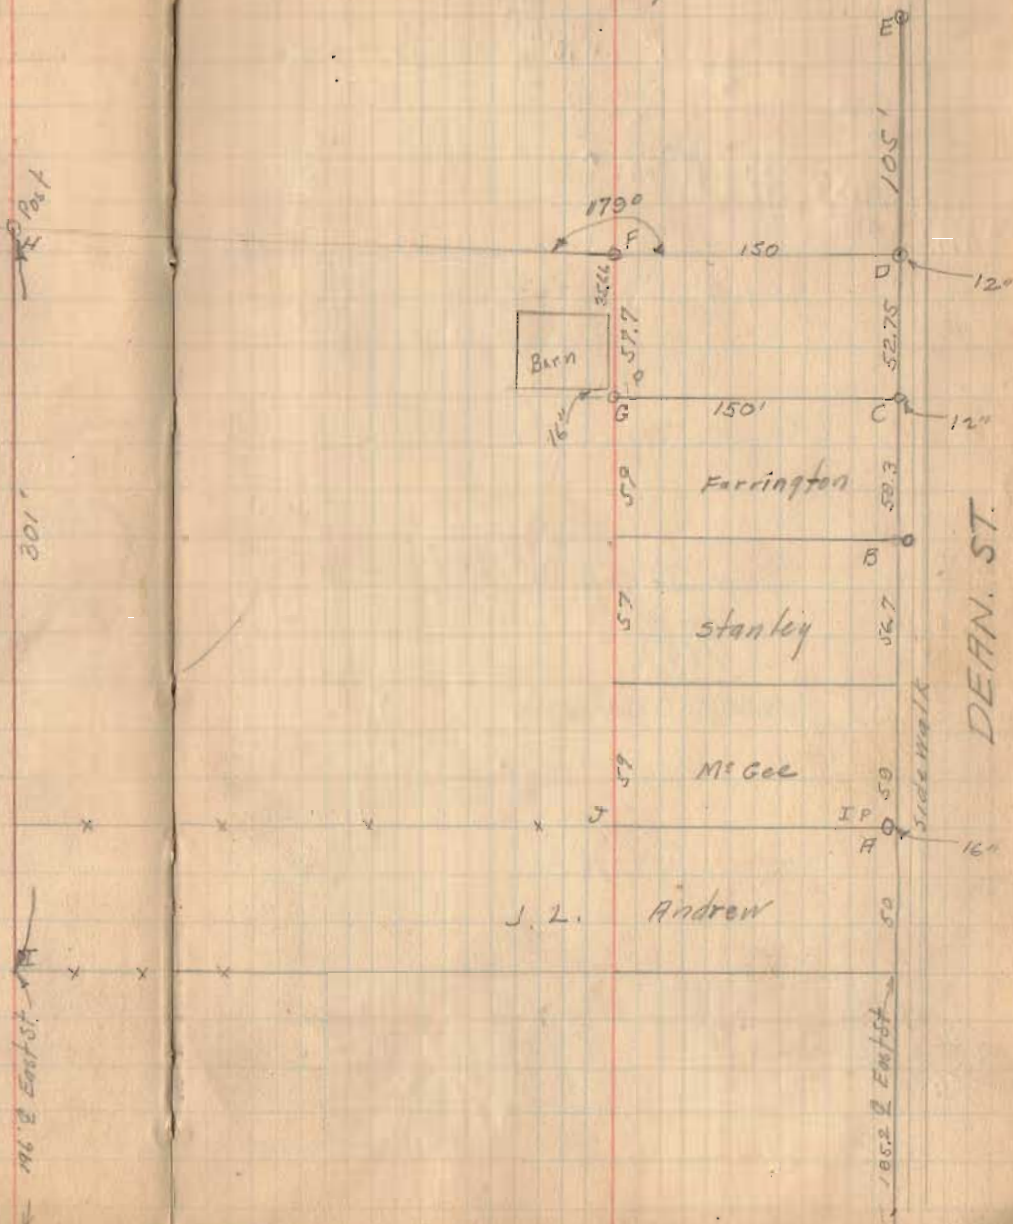 E
105'
Post
H
179°
F
150
D
12"
35.66
57.7
52.75
Barn
P
G
150'
C
12"
16"
301'
58
Farrington
58.3
B
57
Stanley
56.7
DEAN. ST.
Side walk
59
McGee
58
J
I P
A
16"
J. L. Andrew
50
East St.
East St